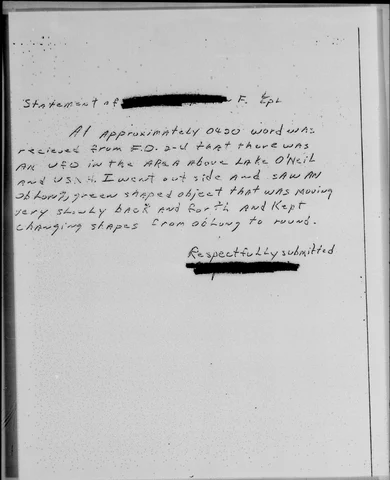 Statement of F. Lpl
At approximately 0420 word was
recieved from F.O. 2-d that there was
an UFO in the area above Lake O'Neil
and USNH. I went out side and saw an
oblong, green shaped object that was moving
very slowly back and forth and kept
changing shapes from oblong to round.
Respectfully submitted